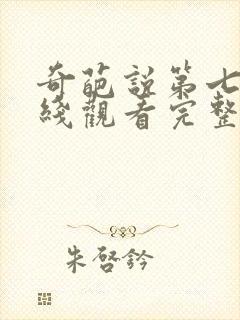 奇葩說第七
綫觀看完整
朱啓鈐